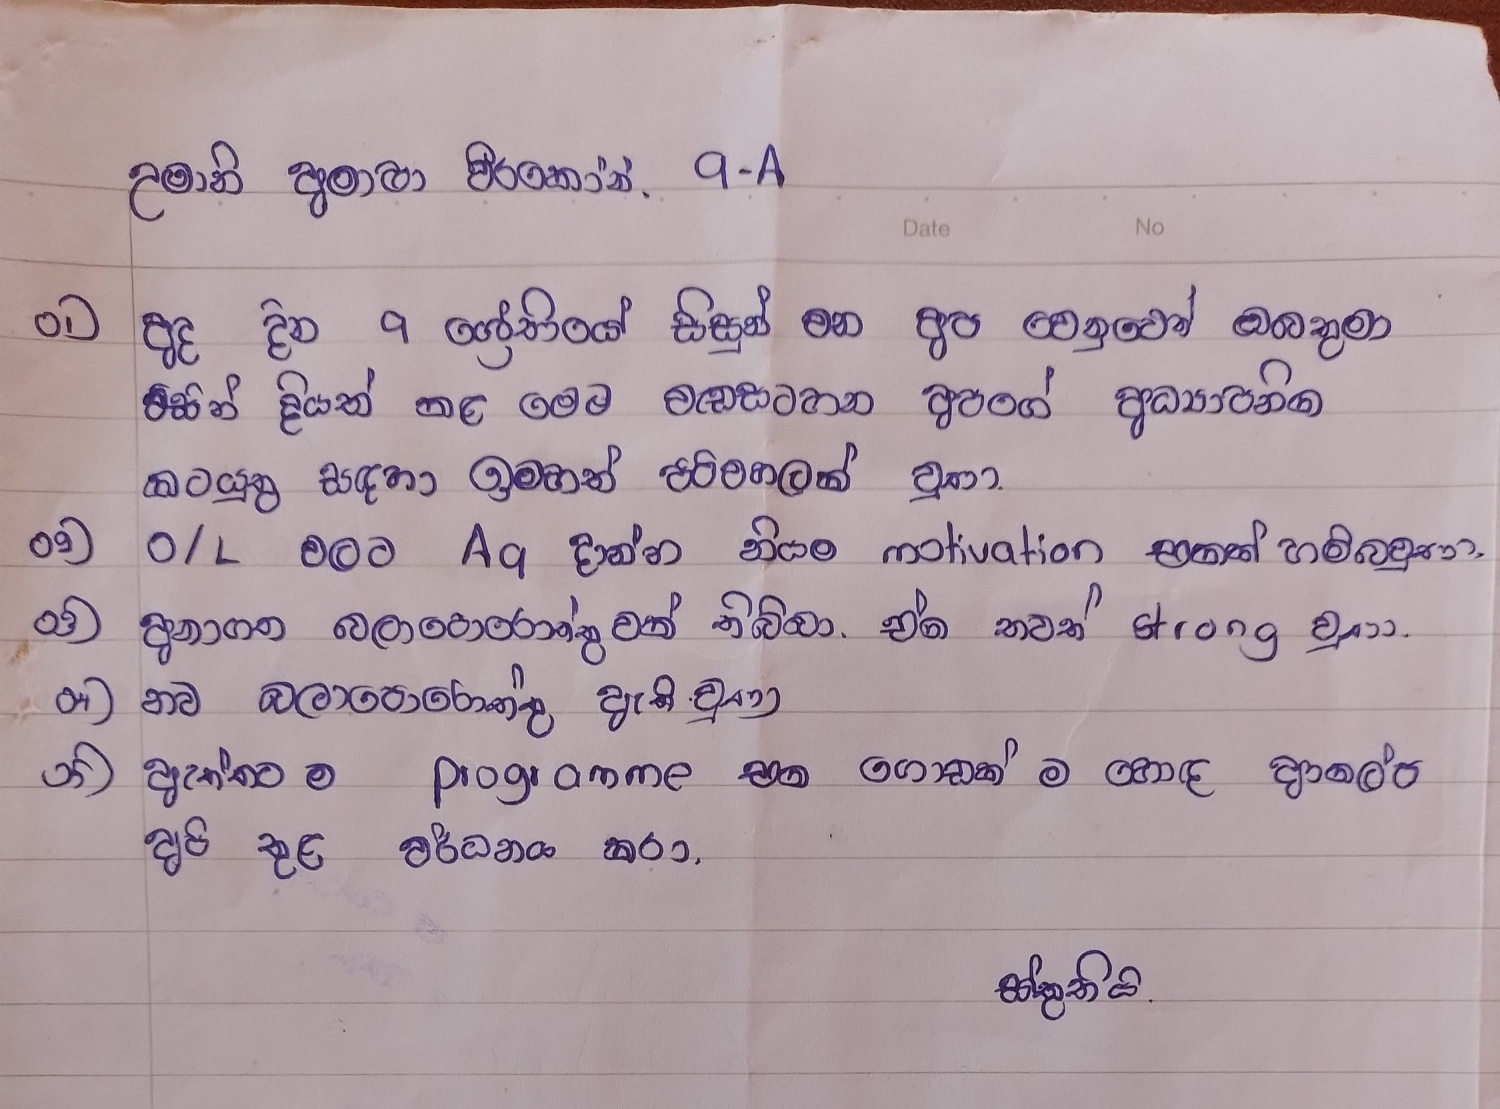 උමානි අමායා වීරකෝන්. 9-A
Date No
01) අද දින 9 ශ්‍රේණියේ සිසුන් වන අප වෙනුවෙන් ඔබතුමා
විසින් දියත් කළ මෙම වැඩසටහන අපගේ අධ්‍යාපනික
කටයුතු සඳහා ඉමහත් පිටිවහලක් වුනා.
02) O/L වලට A9 දාන්න නියම motivation එකක් හම්බවුනා.
03) අනාගත බලාපොරොත්තුවක් තිබ්බා. ඒක තවත් strong වුනා.
04) නව බලාපොරොත්තු ඇති වුනා
05) ඇත්තටම programme එක ගොඩක් ම හොඳ ආකල්ප
අපි තුළ වර්ධනය කරා.
ස්තුතියි.